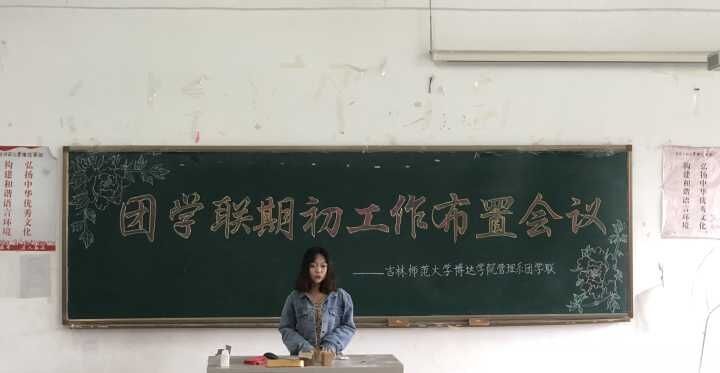 团学联期初工作布置会议
——吉林师范大学博达学院管理系团学联
弘扬中华优秀文化
构建和谐语言环境
弘扬中华优秀文化
构建和谐语言环境